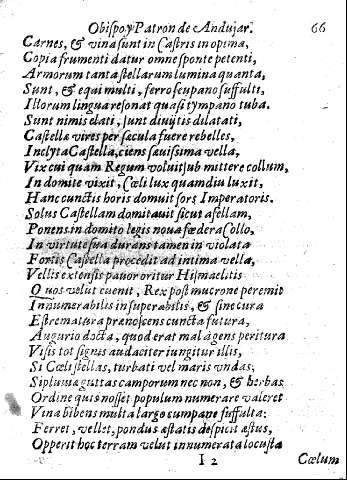 Obispo y Patron de Andujar. 66
Carnes, & vina sunt in Castris in opima,
Copia frumenti datur omne sponte petenti,
Armorum tanta stellarum lumina quanta,
Sunt, & equi multi, ferro seu pano suffulti,
Illorum lingua resonat quasi tympano tuba.
Sunt nimis elati, sunt divijtis dilatati,
Castellæ vires per sæcula fuere rebelles,
Inclyta Castella, ciens sævissima vella,
Vix cui quam Regum voluit sub mittere collum,
In domite vixit, Cœli lux quamdiu luxit,
Hanc cunctis horis domuit sors Imperatoris.
Solus Castellam domitauit sicut asellam,
Ponens in domito legis noua fœdera Collo,
In virtute sua durans tamen in violata
Fortis Castella procedit ad intima vella,
Vellis extensis pauor oritur Hismaelitis
Quos velut euenit, Rex post mucrone peremit
Innumerabilis insuperabilis, & sine cura
Estrematura prænoscens cuncta futura,
Augurio docta, quod erat mal agens peritura
Visis tot signis audaciter iungitur illis,
Si Cœli stellas, turbati vel maris vndas,
Si pluuiæ guttas camporum nec non, & herbas
Ordine quis nosset populum numerare valeret
Vina bibens multa largo cum pane suffulta:
Ferret, vellet, pondus æstatis despicit æstus,
Opperit hoc terram velut innumerata locusta
I 2 Cœlum